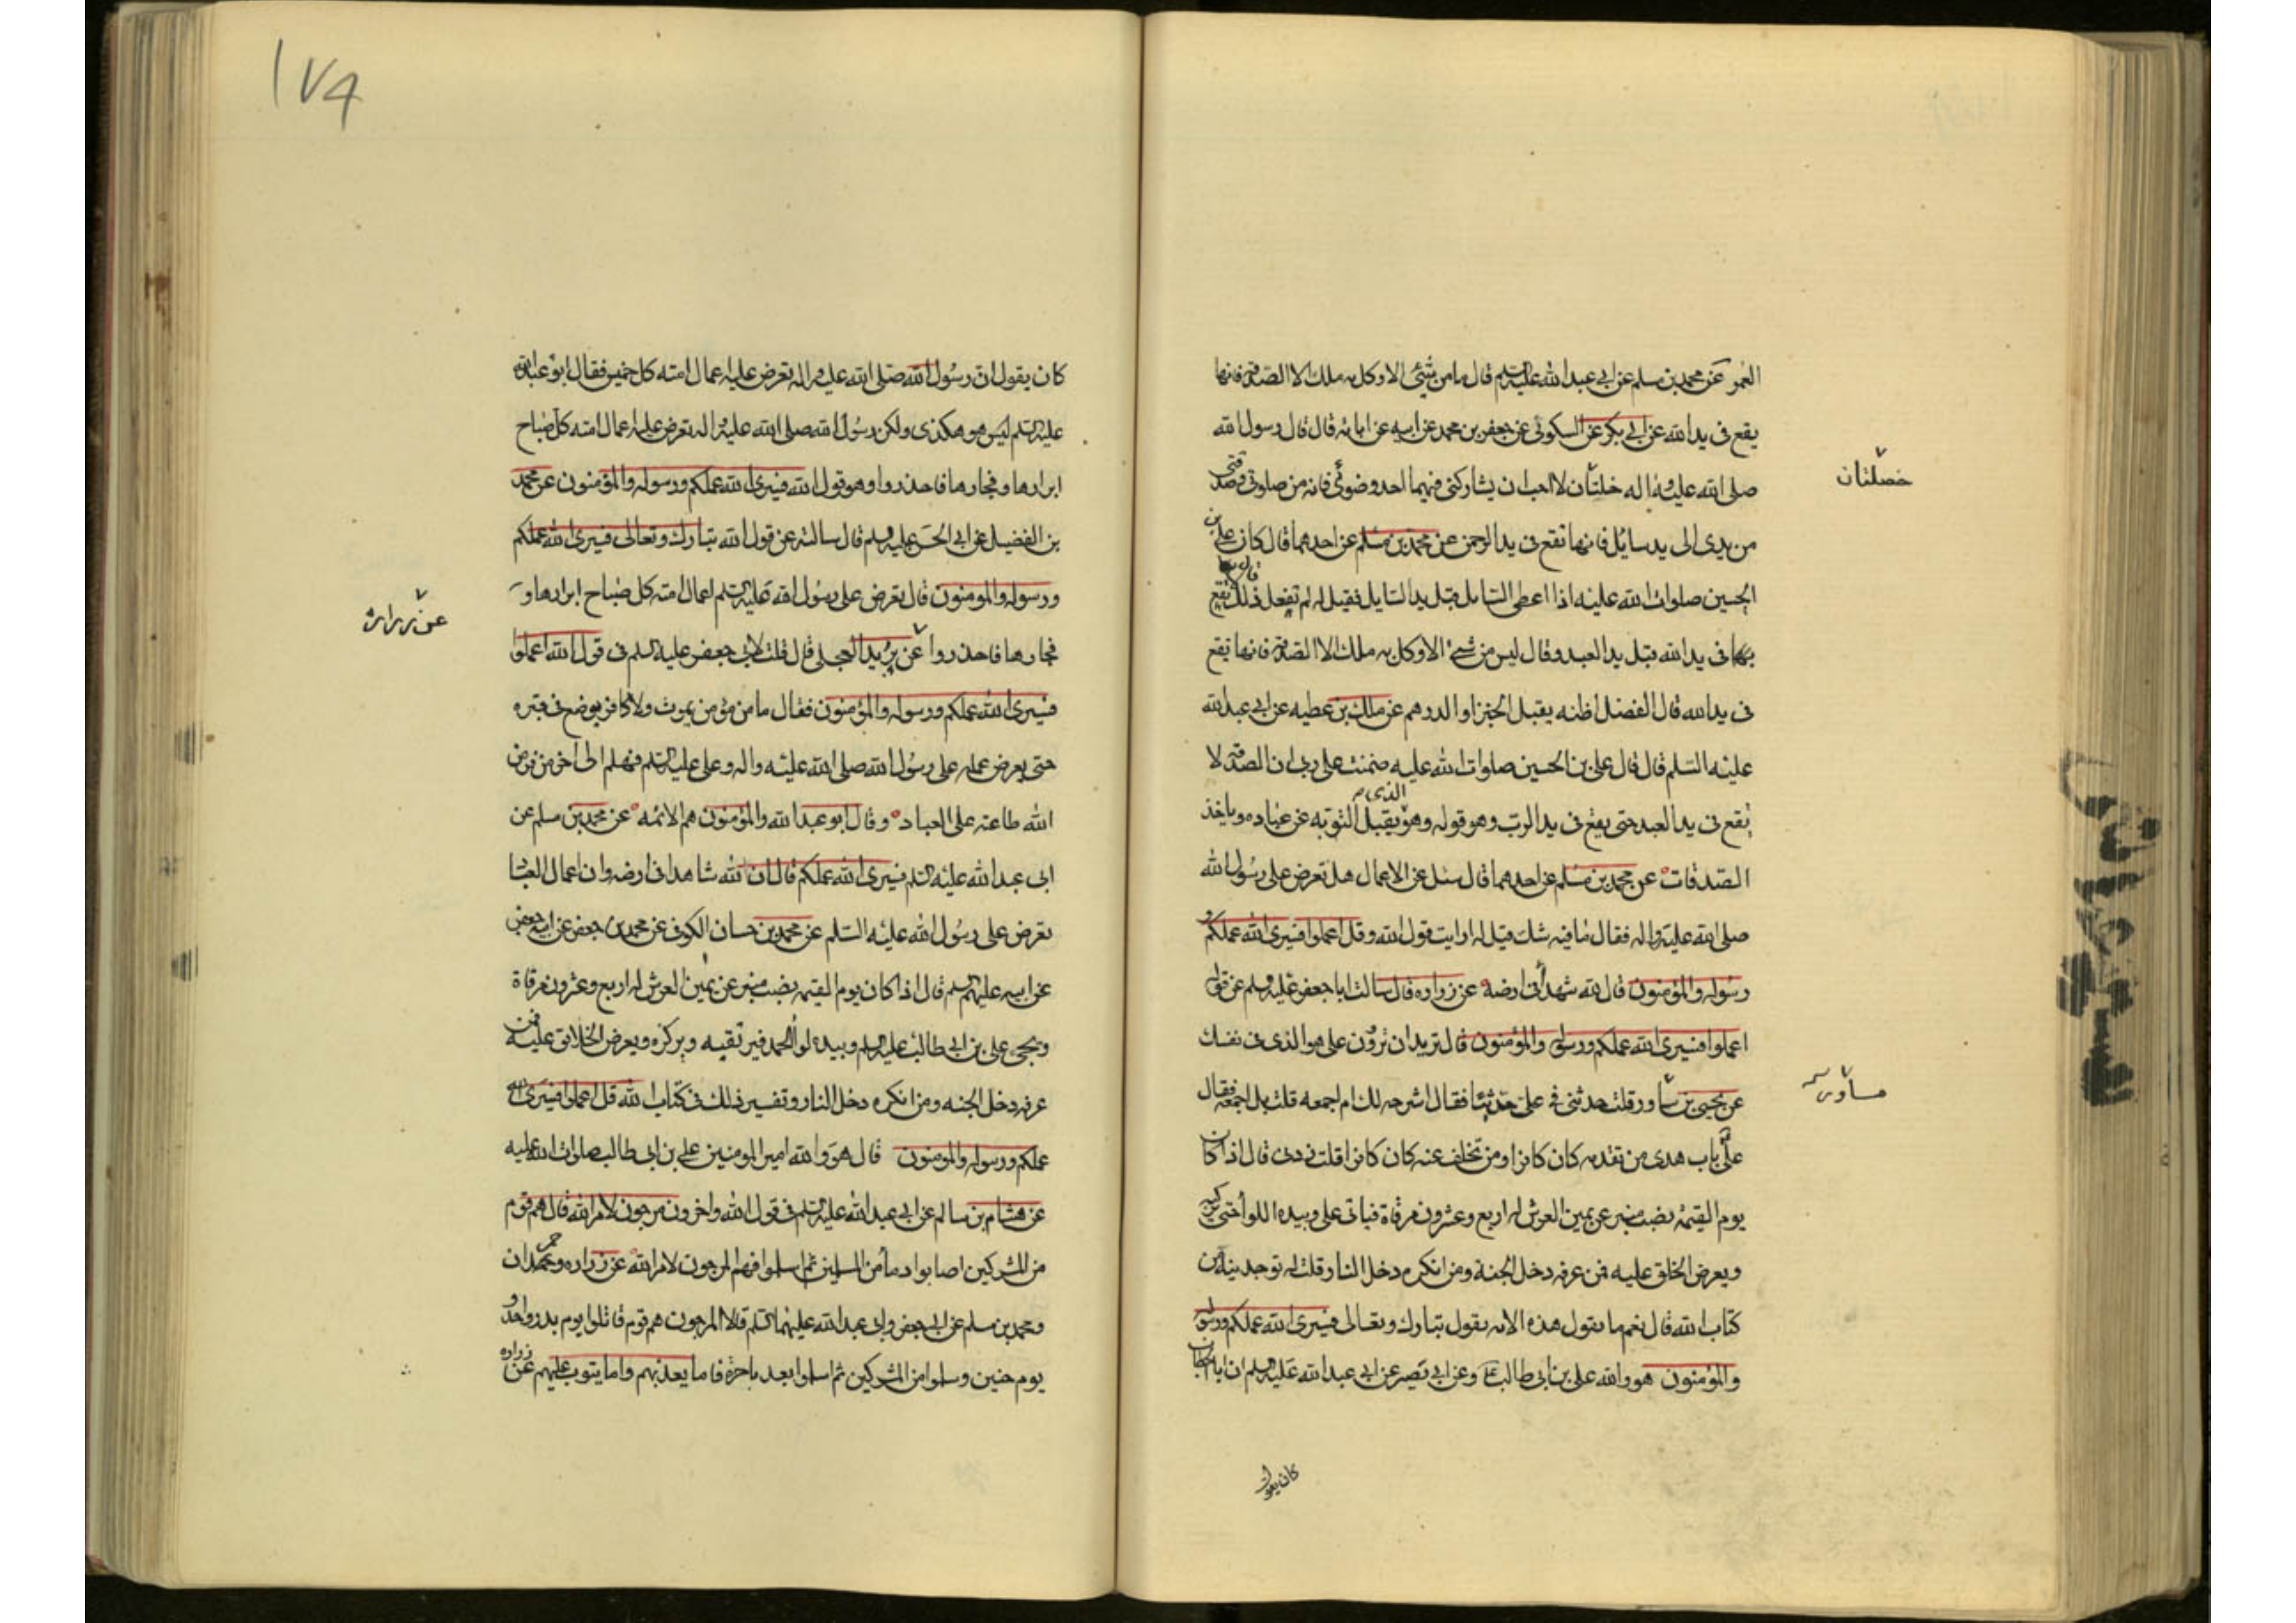 العمر عن محمد بن مسلم عن ابى عبد الله عليه السلم قال ما من شئ الا وكل به ملك الا الصدقة فانها
يقع فى يد الله عن ابى بكر عن السكونى عن جعفر بن محمد عن ابيه عن ابائه قال قال رسول الله
صلى الله عليه واله خلتان لا احب ان يشاركنى فيهما احد وضوئى فانه من صلوتى وصدقتى
من يدى الى يد سايل فانها تقع فى يد الرحمن عن محمد بن مسلم عن احدهما قال كان على بن
الحسين صلوات الله عليه اذا اعطى السايل قبل يد السايل فقيل له لم تفعل ذلك قال لانها تقع
فى يد الله قبل يد العبد وقال ليس من شئ الا وكل به ملك الا الصدقة فانها يقع
فى يد الله قال الفضل اظنه يقبل الخبز او الدرهم عن ملك بن عطيه عن ابى عبد الله
عليه السلم قال قال على بن الحسين صلوات الله عليه ضمنت على ربى ان الصدقة لا
يقع فى يد العبد حتى يقع فى يد الرب وهو قوله وهو الذى يقبل التوبه عن عباده وياخذ
الصدقات عن محمد بن مسلم عن احدهما قال سئل عن الاعمال هل تعرض على رسول الله
صلى الله عليه واله فقال ما فيه شك قيل له ارايت قول الله وقل اعملوا فسيرى الله عملكم و
رسوله والمؤمنون قال لله شهدآ فى ارضه عن زراره قال سالت ابا جعفر عليه السلم عن قول
اعملوا فسيرى الله عملكم ورسوله والمؤمنون قال تريد ان تروون على هو الذى فى نفسك
عن يحيى بن ساور قلت حدثنى فى على حديثا فقال اشرحه لك ام اجمعه قلت بل اجمعه فقال
على باب هدى من تقدمه كان كافرا ومن تخلف عنه كان كافرا قلت زدنى قال اذا كان
يوم القيمة نصب منبر عن يمين العرش له اربع وعشرون مرقاة فياتى على وبيده اللوا حتى يركبه
ويعرض الخلق عليه فمن عرفه دخل الجنة ومن انكره دخل النار قلت له توجدينه من
كتاب الله قال نعم ما تقول هذه الايه يقول تبارك وتعالى فسيرى الله عملكم ورسوله
والمؤمنون هو والله على بن ابى طالب ع وعن ابى بصير عن ابى عبد الله عليه السلم ان ابا الخطاب
كان يقول
خصلتان
مساور
١٧٩
كان يقول ان رسول الله صلى الله عليه واله تعرض عليه اعمال امته كل خميس فقال ابو عبد الله
عليه السلم ليس هو هكذى ولكن رسول الله صلى الله عليه واله تعرض عليه اعمال امته كل صباح
ابرارها وفجارها فاحذروا وهو قول الله فسيرى الله عملكم ورسوله والمؤمنون عن محمد
بن الفضيل عن ابى الحسن عليه السلم قال سالته عن قول الله تبارك وتعالى فسيرى الله عملكم
ورسوله والمومنون قال تعرض على رسول الله عليه السلم اعمال امته كل صباح ابرارها و
فجارها فاحذروا عن بريد العجلى قال قلت لابى جعفر عليه السلم فى قول الله اعملوا
فسيرى الله عملكم ورسوله والمؤمنون فقال ما من مؤمن يموت ولا كافر يوضع فى قبره
حتى يعرض عمله على رسول الله صلى الله عليه واله وعلى عليه السلم فهلم الى اخر من فرض
الله طاعته على العباد وقال ابو عبد الله والمؤمنون هم الائمه عن محمد بن مسلم عن
ابى عبد الله عليه السلم فسيرى الله عملكم قال ان لله شاهدا فى ارضه وان اعمال العباد
تعرض على رسول الله عليه السلم عن محمد بن حسان الكوفى عن محمد بن جعفر عن ابيه جعفر
عن ابيه عليهم السلم قال اذا كان يوم القيمه نصب منبر عن يمين العرش له اربع وعشرون مرقاة
ويجئ على بن ابى طالب عليه السلم وبيده لوا الحمد فيرتقيه ويركزه ويعرض الخلايق عليه فمن
عرفه دخل الجنه ومن انكره دخل النار وتفسير ذلك فى كتاب الله قل اعملوا فسيرى الله
عملكم ورسوله والمومنون قال هو والله امير المومنين على بن ابى طالب صلوات الله عليه
عن هشام بن سالم عن ابى عبد الله عليه السلم فى قول الله واخرون مرجون لامر الله قال هم قوم
من المشركين اصابوا دما من المسلمين ثم اسلموا فهم المرجون لامر الله عن زراره وحمران
ومحمد بن مسلم عن ابى جعفر وابى عبد الله عليهما السلم قالا المرجون هم قوم قاتلوا يوم بدر واحد و
يوم حنين وسلموا من المشركين ثم اسلموا بعد تاخره فاما يعذبهم واما يتوب عليهم عن زراره
عن زراره